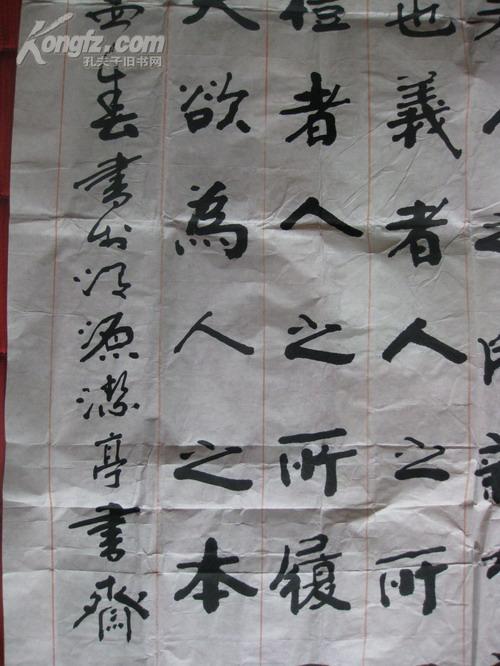 Kongfz.com
孔夫子旧书网
之
也義者人之所
禮者人之所履
夫欲為人之本
春書於源潔亭書齋